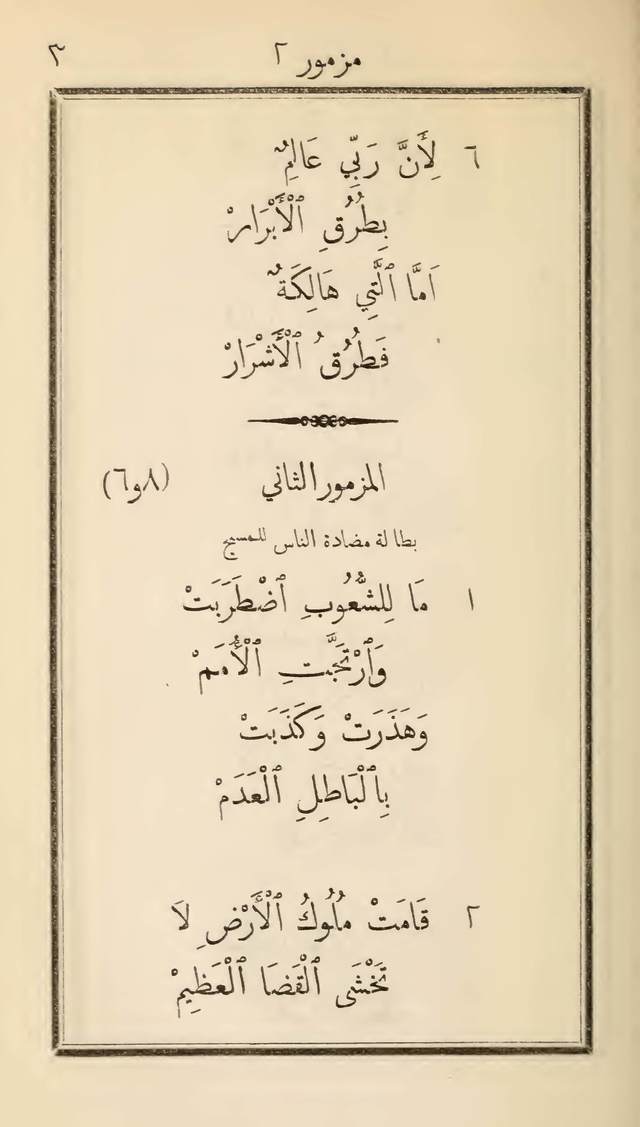 مزمور ٢ ٣
٦ لِأَنَّ رَبِّي عَالِمٌ
بِطُرُقِ ٱلْأَبْرَارْ
اَمَّا ٱلَّتِي هَالِكَةٌ
فَطُرُقُ ٱلْأَشْرَارْ
المزمور الثاني (٨و٦)
بطالة مضادة الناس للمسيح
١ مَا لِلشُّعُوبِ ٱضْطَرَبَتْ
وَٱرْتَجَّتِ ٱلْأُمَمْ
وَهَذَرَتْ وَكَذَبَتْ
بِٱلْبَاطِلِ ٱلْعَدَمْ
٢ قَامَتْ مُلُوكُ ٱلْأَرْضِ لاَ
تَخْشَى ٱلْقَضَا ٱلْعَظِيمْ